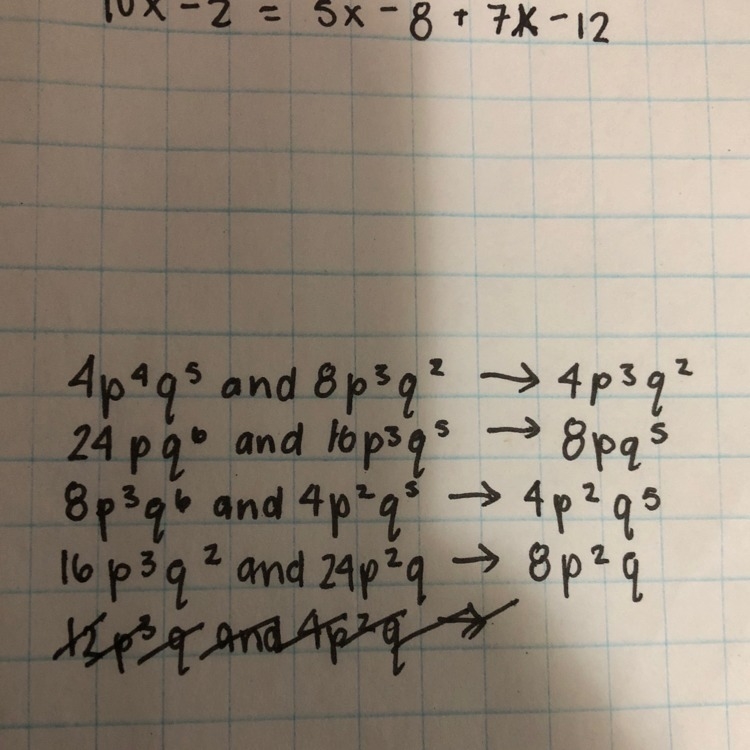 10x - 2 = 5x - 8 + 7x - 12
4p⁴q⁵ and 8p³q² → 4p³q²
24pq⁶ and 16p³q⁵ → 8pq⁵
8p³q⁶ and 4p²q⁵ → 4p²q⁵
16p³q² and 24p²q → 8p²q
12p³q and 4p²q →